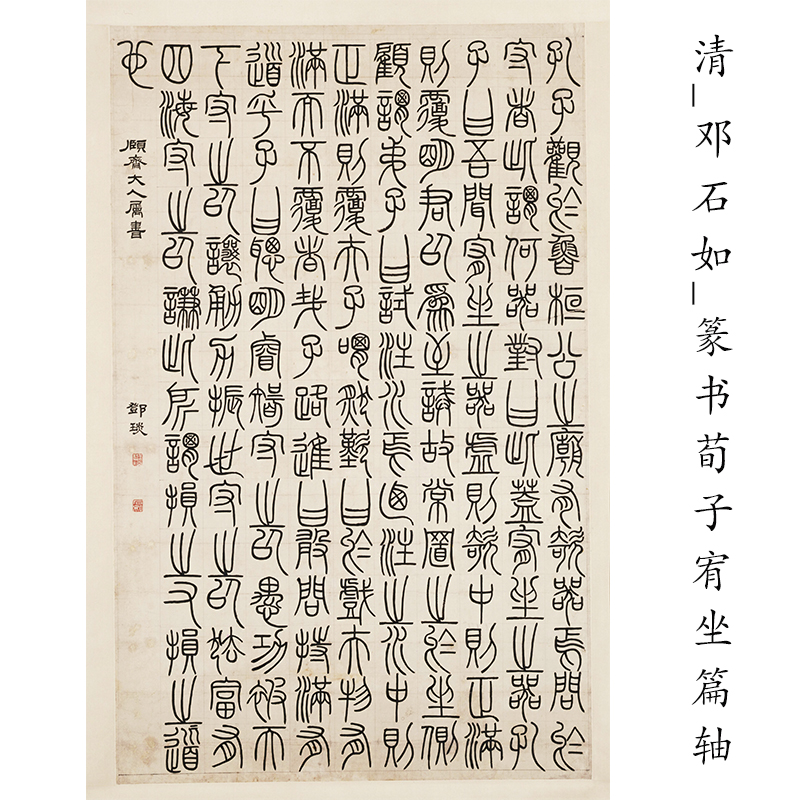 清_邓石如_篆书荀子宥坐篇轴
孔子觀於魯桓公之廟有欹器焉問於
守者此謂何器對曰此蓋宥坐之器孔
子曰吾聞宥坐之器虛則欹中則正滿
則覆明君以爲至誡故常置之於坐側
顧謂弟子曰試注水焉乃注之水中則
正滿則覆夫子喟然歎曰於戲夫物有
滿而不覆者哉子路進曰敢問持滿有
道乎子曰聰明睿智守之以愚功被天
下守之以讓勇力振世守之以怯富有
四海守之以謙此所謂損之又損之道
也
頤齋大人屬書
鄧琰